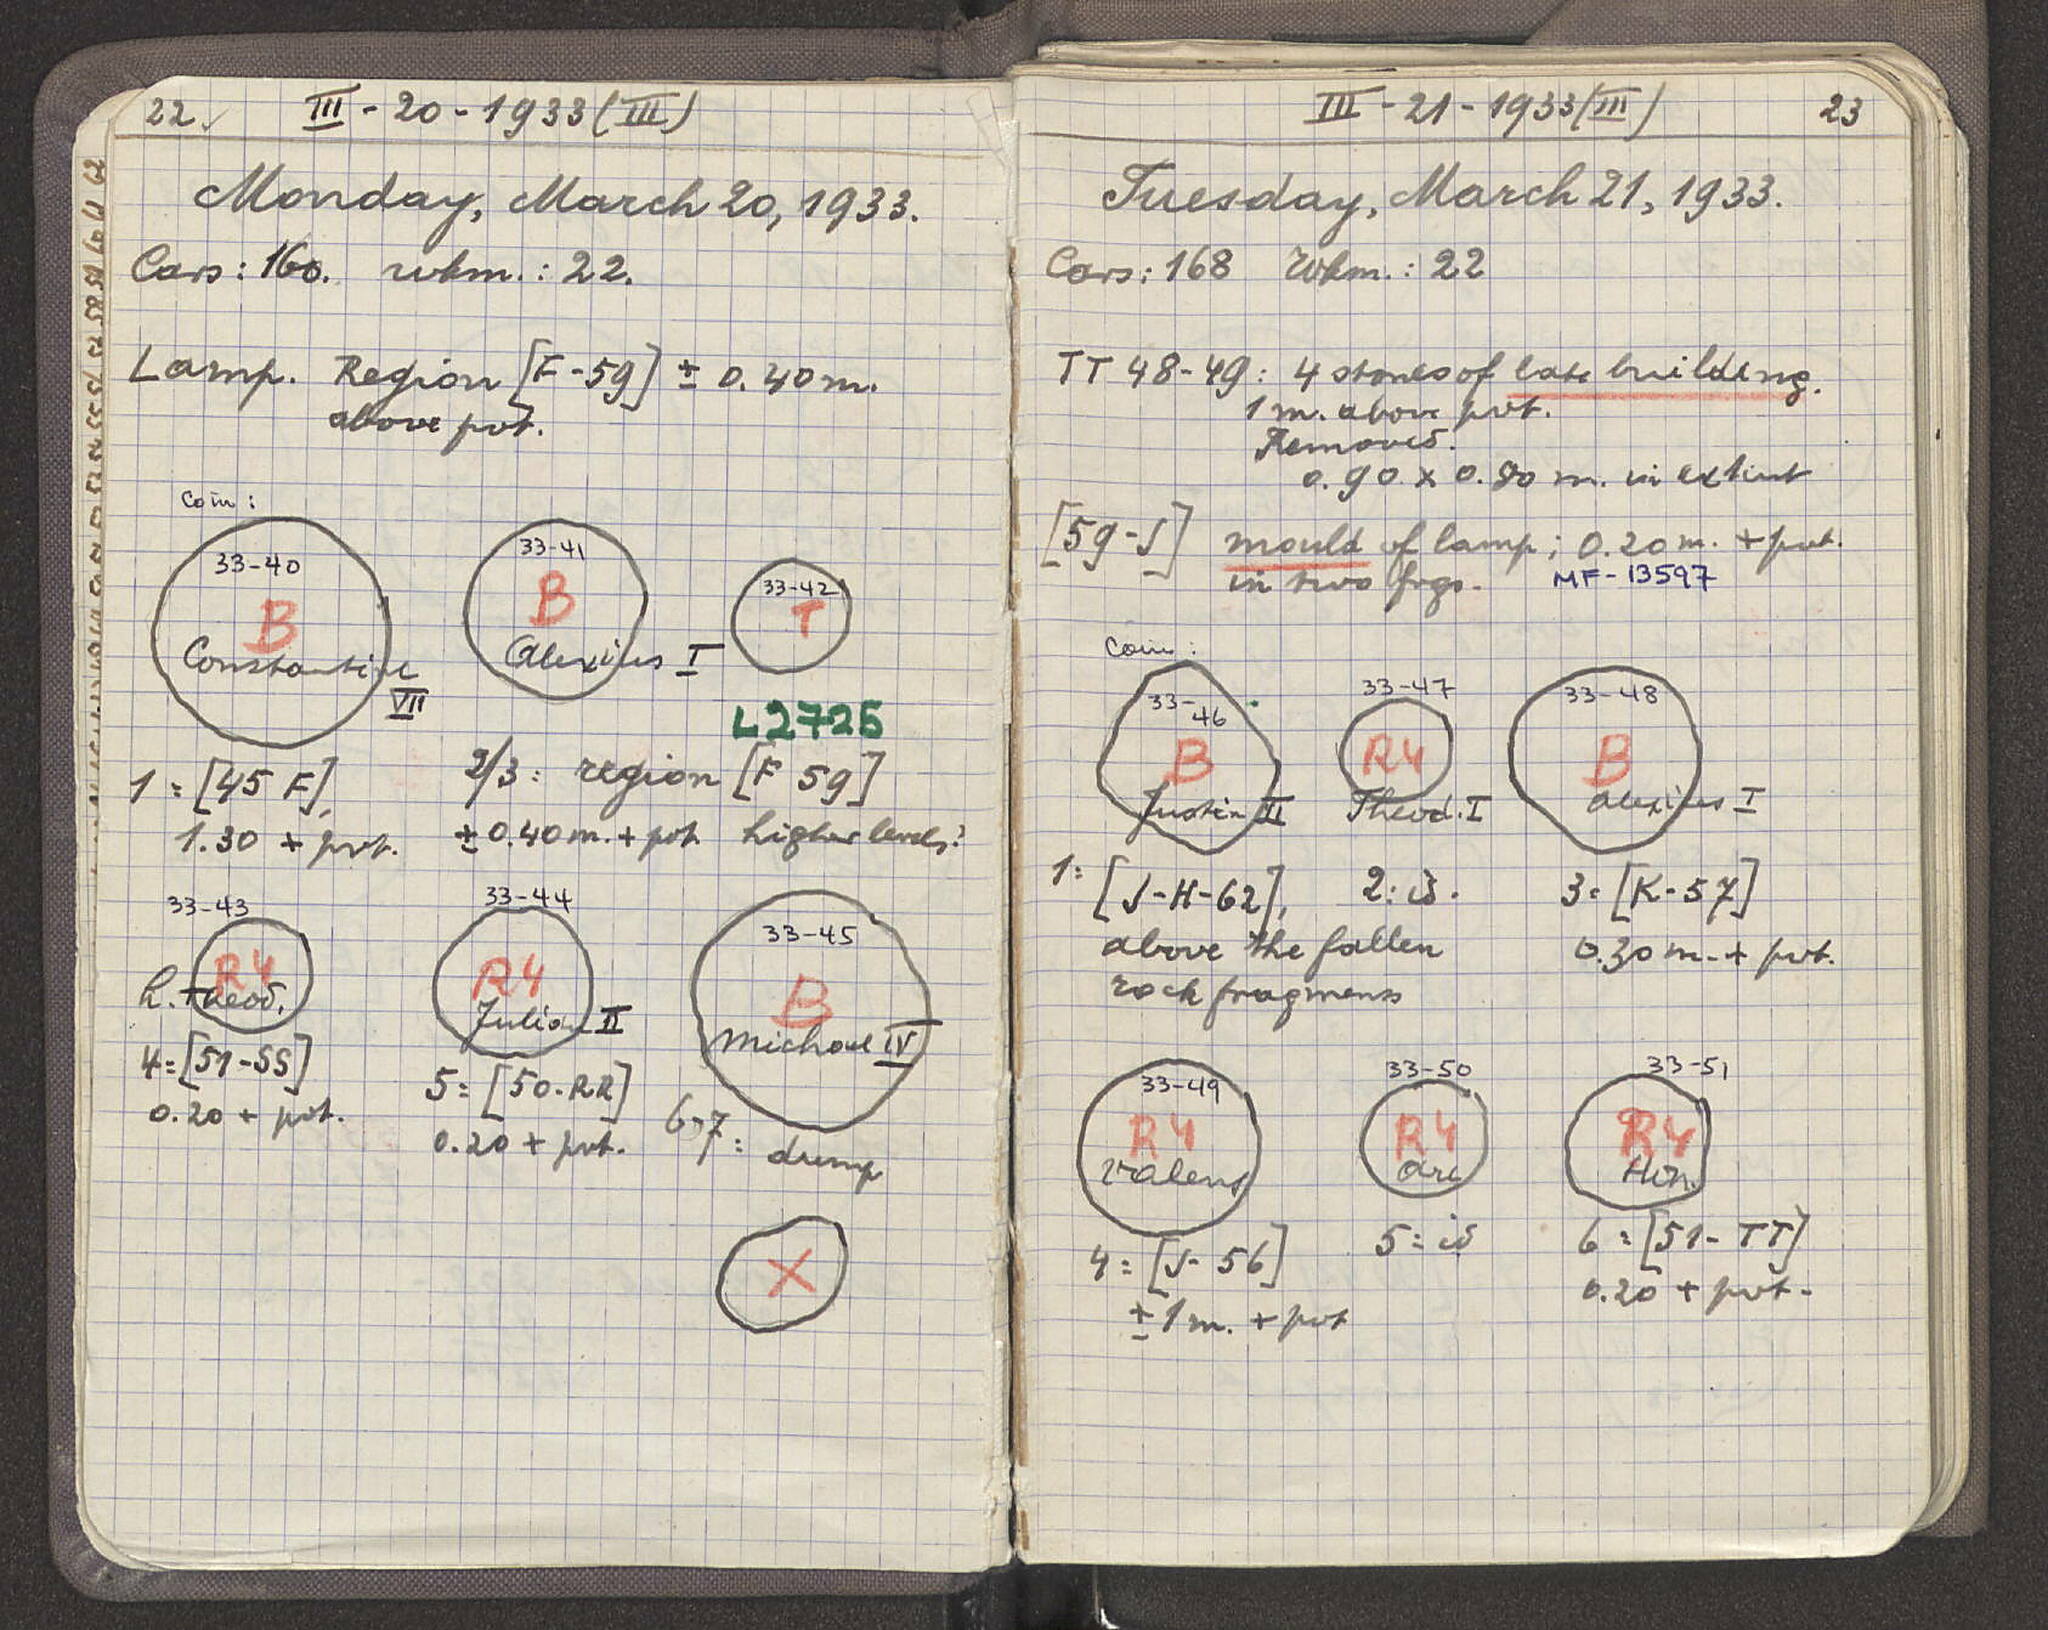 22. III - 20 - 1933 (III)
Monday, March 20, 1933.
Cars: 160. wkm.: 22.
Lamp. Region [F-59] ± 0.40 m.
above pvt.
Coin:
33-40
B
Constantine
VII
33-41
B
Alexius I
33-42
T
L2725
1 = [45 F],
1.30 + pvt.
2/3: region [F 59]
± 0.40 m. + pvt. higher levels?
33-43
R4
h. Theod.
4 = [51-SS]
0.20 + pvt.
33-44
R4
Julian II
5 = [50-RR]
0.20 + pvt.
33-45
B
Michael IV
6-7: dump
X
III - 21 - 1933 (III) 23
Tuesday, March 21, 1933.
Cars: 168 Wkm.: 22
TT 48-49: 4 stones of late building.
1 m. above pvt.
Removed.
0.90 x 0.80 m. in extent
[59-J] mould of lamp; 0.20 m. + pvt.
in two frgs. MF-13597
Coin:
33-46
B
Justin II
33-47
R4
Theod. I
33-48
B
Alexius I
1: [J-H-62],
above the fallen
rock fragments
2: id.
3: [K-57]
0.30 m. + pvt.
33-49
R4
Valens
33-50
R4
Arc
33-51
R4
Hon.
4 = [J-56]
± 1 m. + pvt
5 = id
6 = [51-TT]
0.20 + pvt.